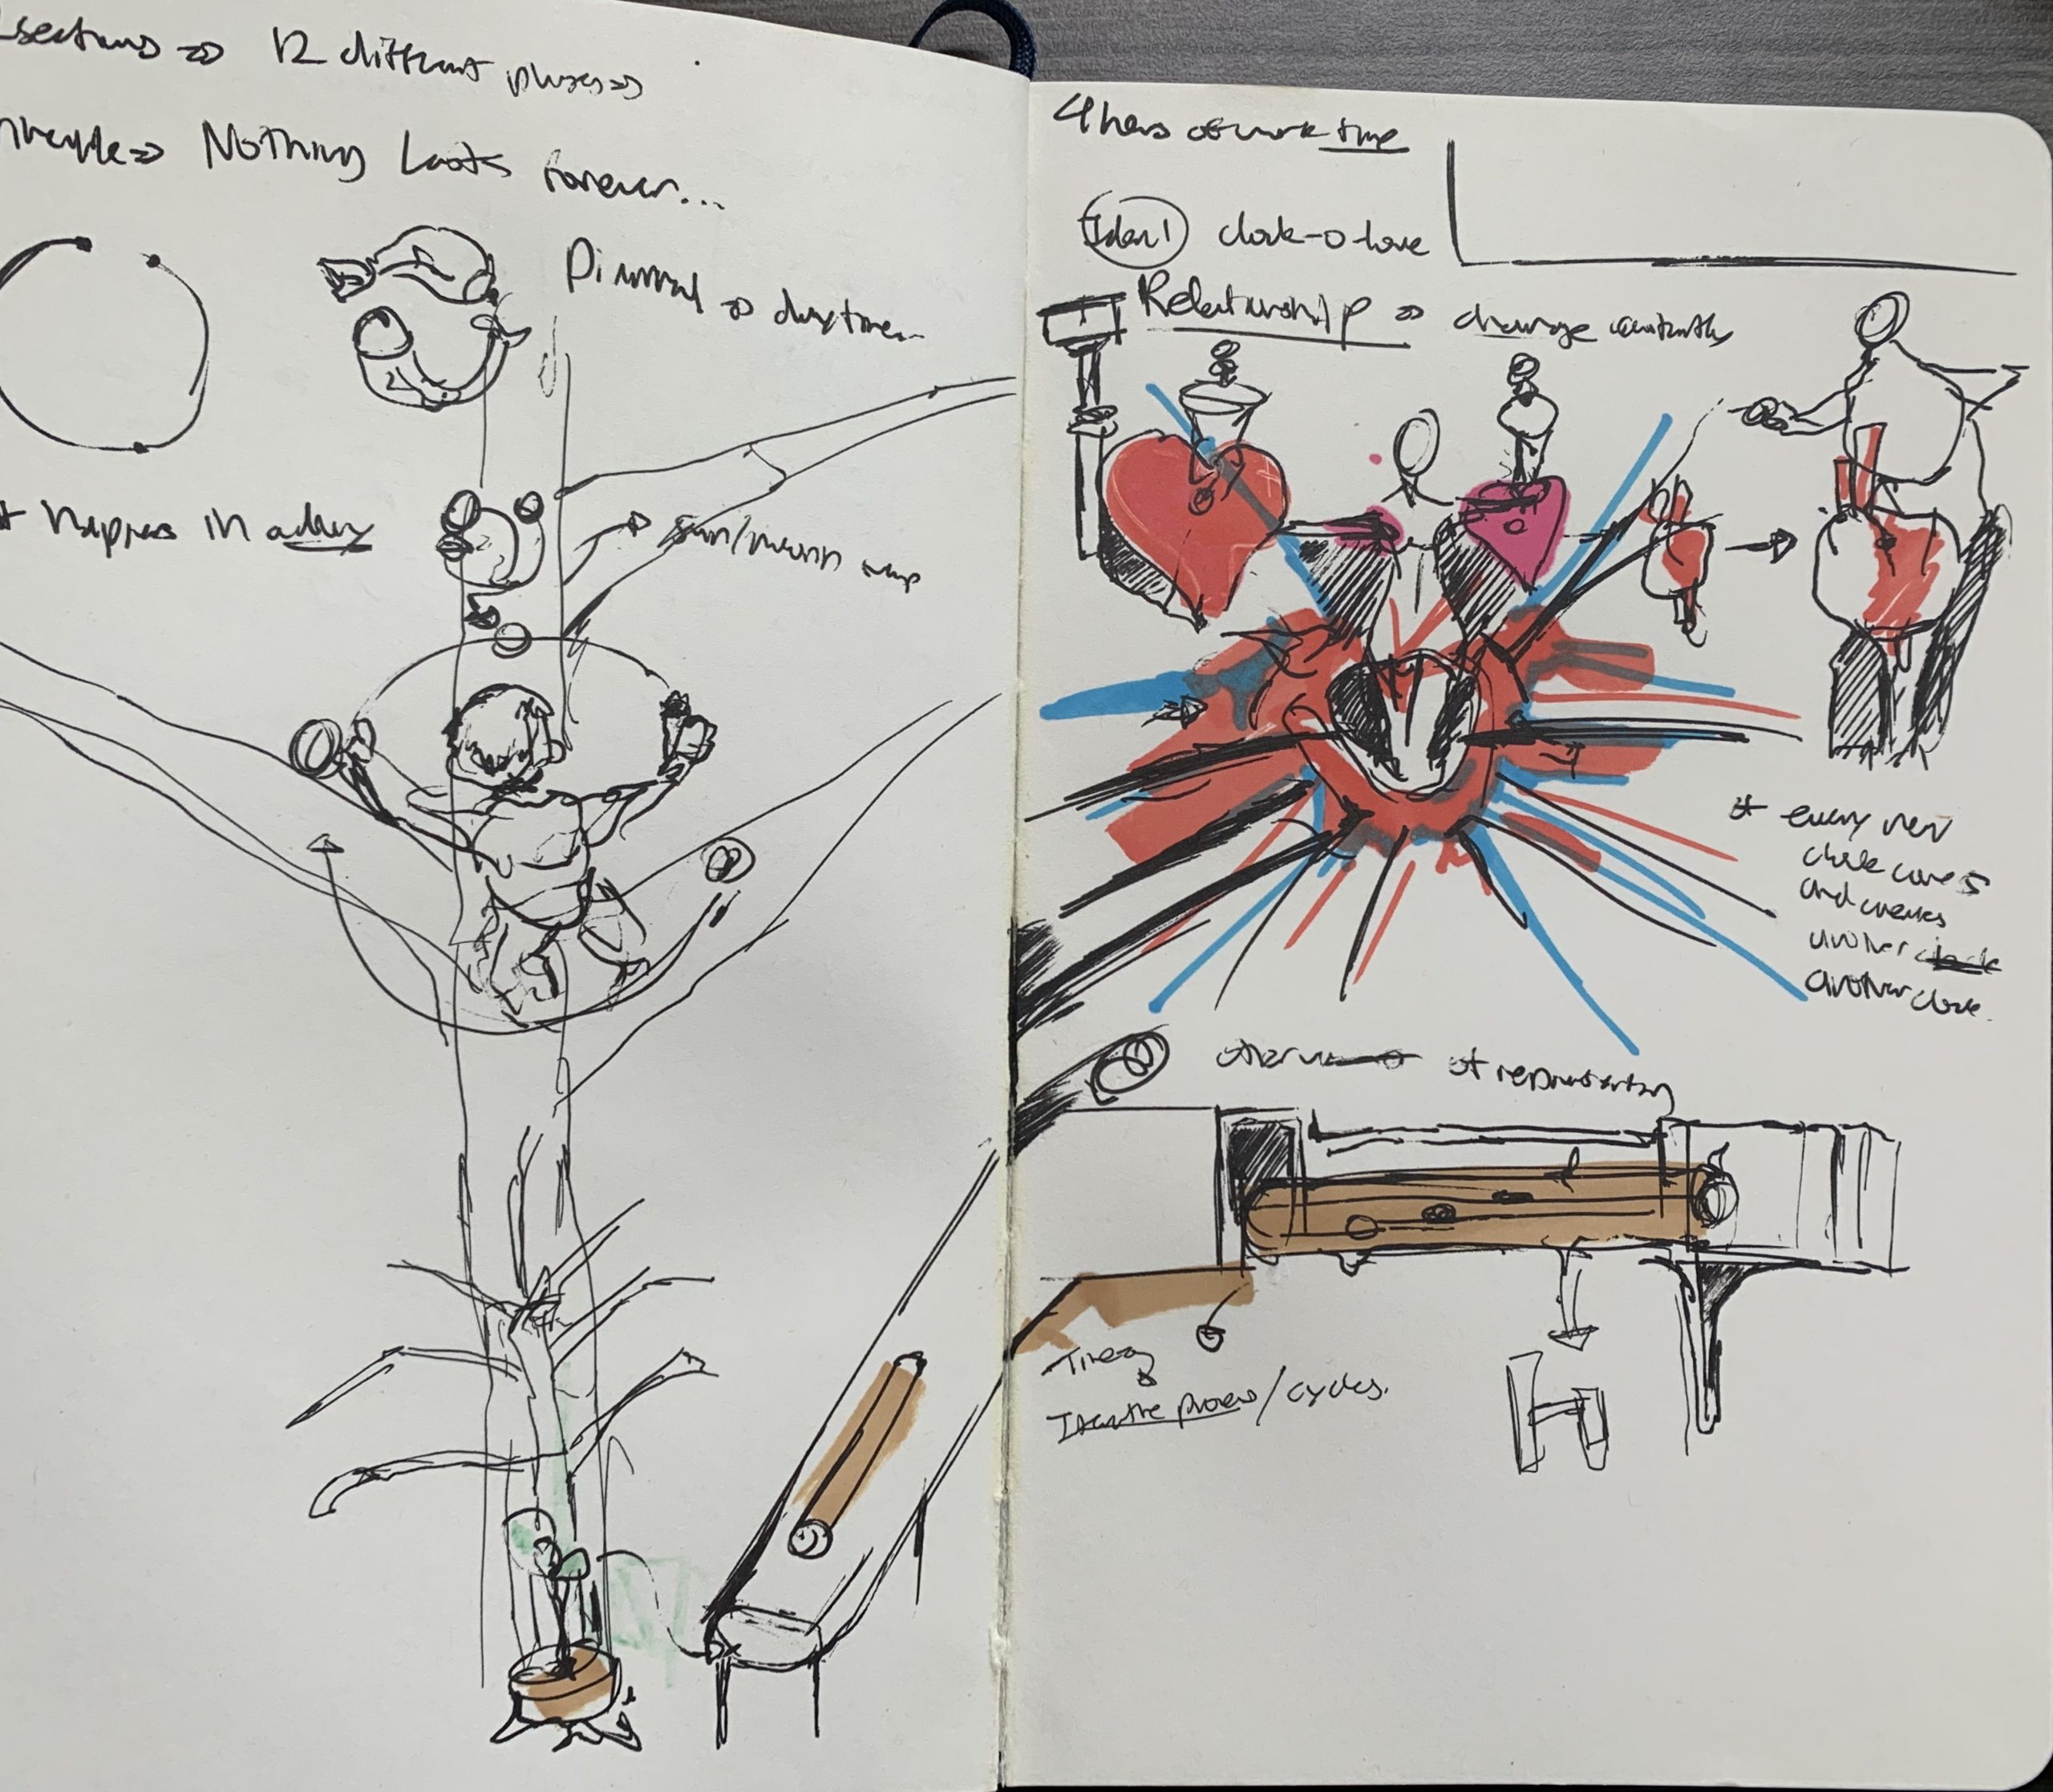 sections => 12 different phases =>
=> Nothing Lasts forever...
Diurnal => daytime
* Happens in a day
sun/moon
4 hours of work time
Idea 1 clock-o-love
Relationship => change constantly
* every new
clock comes
and creates
another clock
another clock.
of representing
Iterative process / cycles.